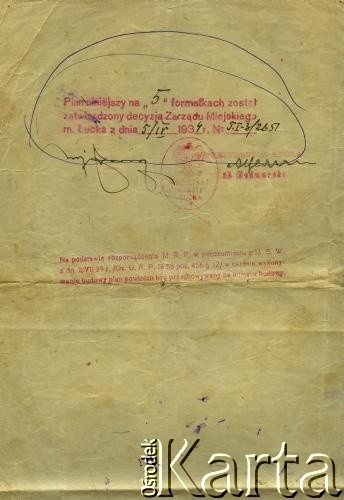 Plan niniejszy na „5" formatkach został
zatwierdzony decyzją Zarządu Miejskiego
m. Łucka z dnia 5/IV 1934 r. №
MAGISTRAT
MIASTA
ŁUCKA
Na podstawie rozporządzenia M. R. P. w porozumieniu z M. S. W.
z dn. 2/VII 29 r. /Dz. U. R. P. № 55 poz. 456 § 12/ w czasie wykony-
wania budowy plan powinien być przechowywany na miejscu budowy.
Ośrodek
Karta